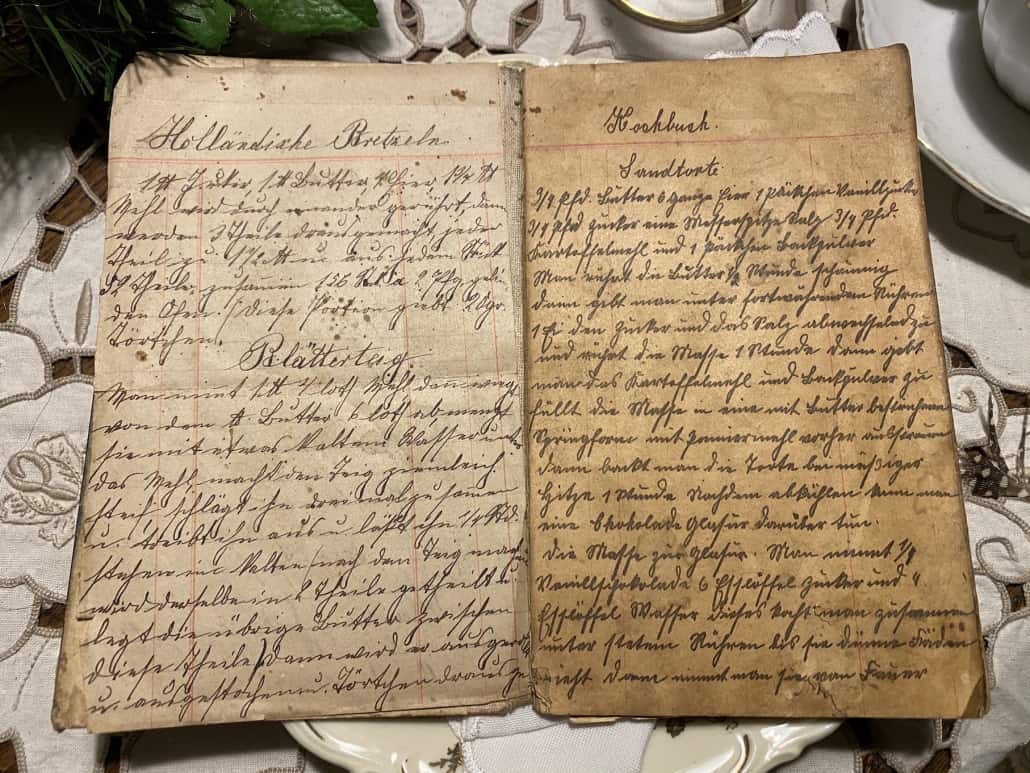 Holländische Bretzeln.
1 ℔ Zucker 1 ℔ Butter, Eier, 1½ ℔
Mehl wird durch einander gerührt, dann
werden 3 Theile draus gemacht, jeder
Theil zu 1½ ℔ u aus jedem Stück
52 Theile, zusamm 156 St a 2 Pfg. geli.
den Ofen. (Diese Portion giebt
Törtchen.
Blätterteig.
Man nimt 1 ℔ 4 loth Mehl dan wieg
von dem ℔ Butter 6 lot ab mengt
sie mit etwas kaltem Wasser unter
das Mehl, macht den Teig ziemleich
steif schlägt ihn dreimal zu samen
u. treibt ihn aus u. läßt ihn ¼ Std.
stehen im kalten (nach dem Teig mach
wird derselbe in 2 Theile getheilt u.
legt die übrige Butter zwischen
diese Theile) dann wird er ausgerollt
u. ausgestochen u. Törtchen draus ge
Kochbuch.
Sandtorte
3/4 Pfd. Butter 6 ganze Eier 1 Päckchen Vanillzucker
3/4 Pfd Zucker eine Messerspitze Salz 3/4 Pfd.
Kartoffelmehl und 1 Päckchen Backpulver
Man rührt die Butter ½ Stunde schaumig
dann gibt man unter fortwährendem Rühren
1 Ei den Zucker und das Salz abwechselnd zu
und rührt die Masse 1 Stunde dann gibt
man das Kartoffelmehl und Backpulver zu
füllt die Masse in eine mit Butter bestrichene
Springform mit Pannermehl vorher ausstreuen
dann backt man die Torte bei mäßiger
Hitze 1 Stunde Nachdem abkühlen kann man
eine Chokolade Glasur darüber tun.
Die Masse zur Glasur. Man nimmt 1/4
Vanillschokolade 6 Esslöffel Zucker und 4
Esslöffel Wasser dieses kocht man zusammen
unter stetem Rühren bis sie dünne Fäden
zieht Dann nimmt man sie vom Feuer